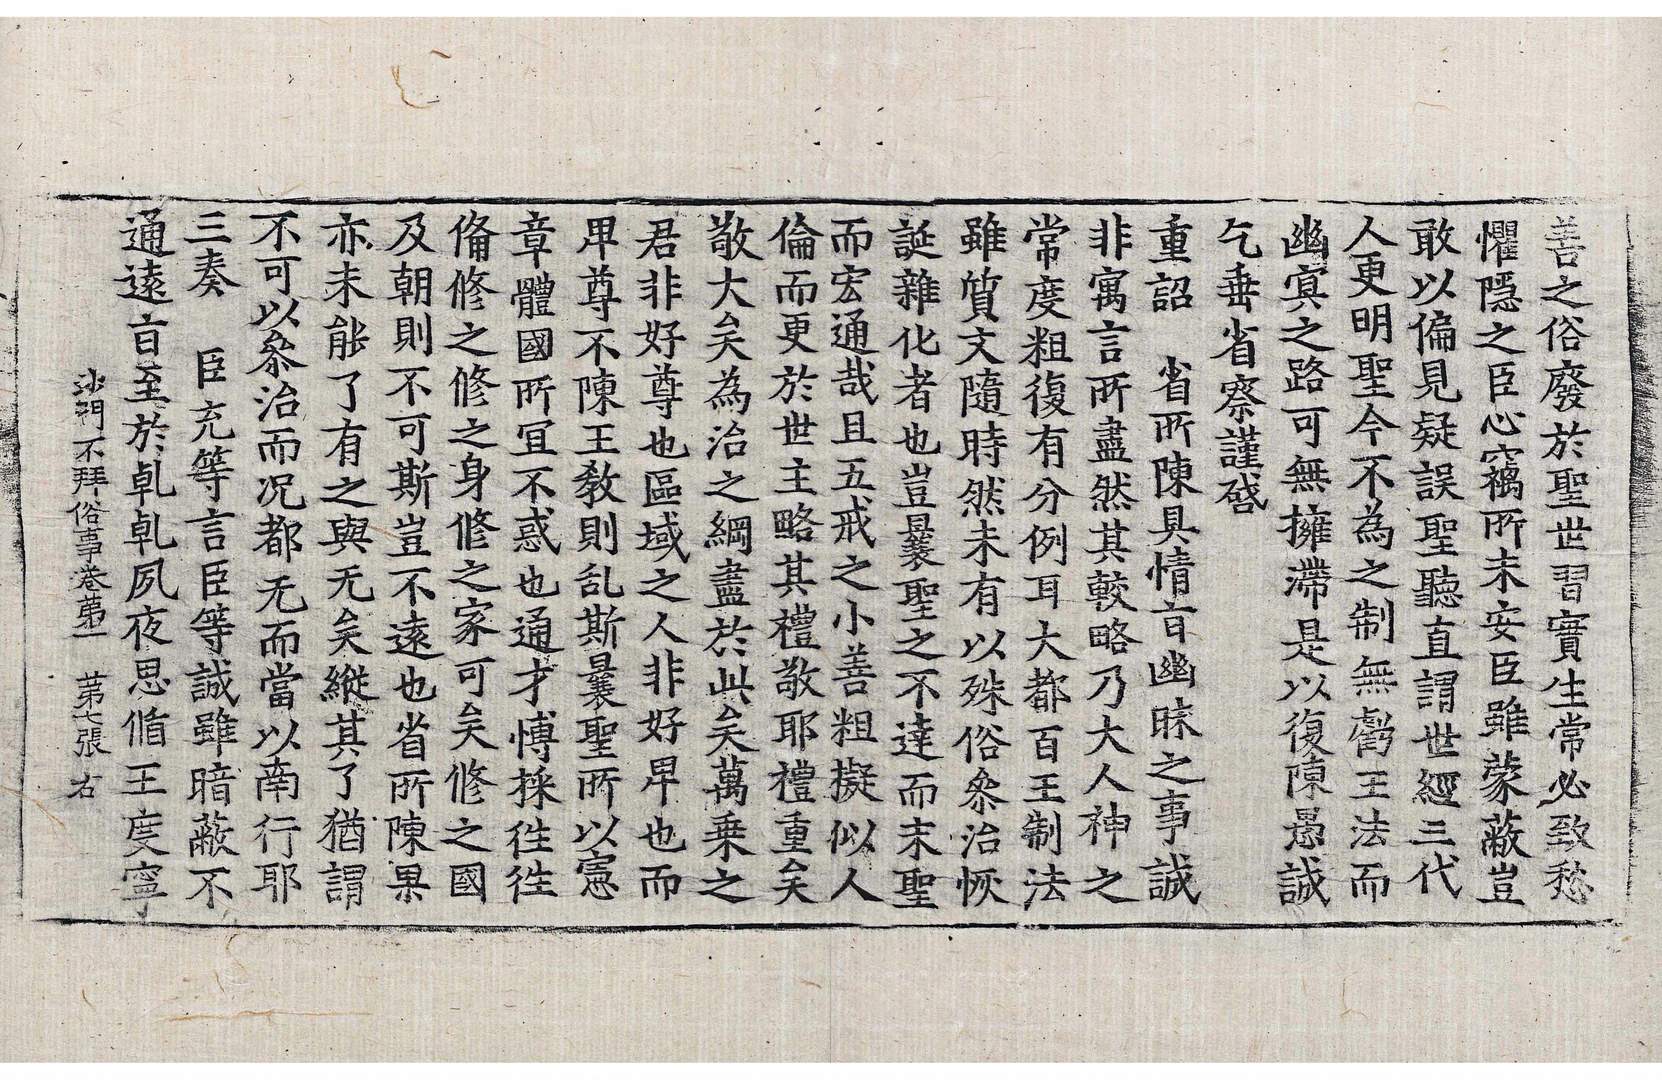 善之俗廢於聖世習實生常必致愁
懼隱之臣心竊所未安臣雖蒙蔽豈
敢以偏見疑誤聖聽直謂世經三代
人更明聖今不為之制無虧王法而
幽冥之路可無擁滯是以復陳愚誠
乞垂省察謹啓
重詔　省所陳具情旨幽昧之事誠
非寓言所盡然其較略乃大人神之
常度粗復有分例耳大都百王制法
雖質文隨時然未有以殊俗叅治恢
誕雜化者也豈曩聖之不達而末聖
而宏通哉且五戒之小善粗擬似人
倫而更於世主略其禮敬耶禮重矣
敬大矣為治之綱盡於此矣萬乗之
君非好尊也區域之人非好卑也而
卑尊不陳王教則乱斯曩聖所以憲
章體國所冝不惑也通才愽採徃徃
俻修之修之身修之家可矣修之國
及朝則不可斯豈不遠也省所陳果
亦未能了有之與无矣縱其了猶謂
不可以叅治而况都无而當以南行耶
三奏　臣充等言臣等誠雖暗蔽不
通遠旨至於乹乹夙夜思脩王度寧
沙門不拜俗事卷第一　第七張　右